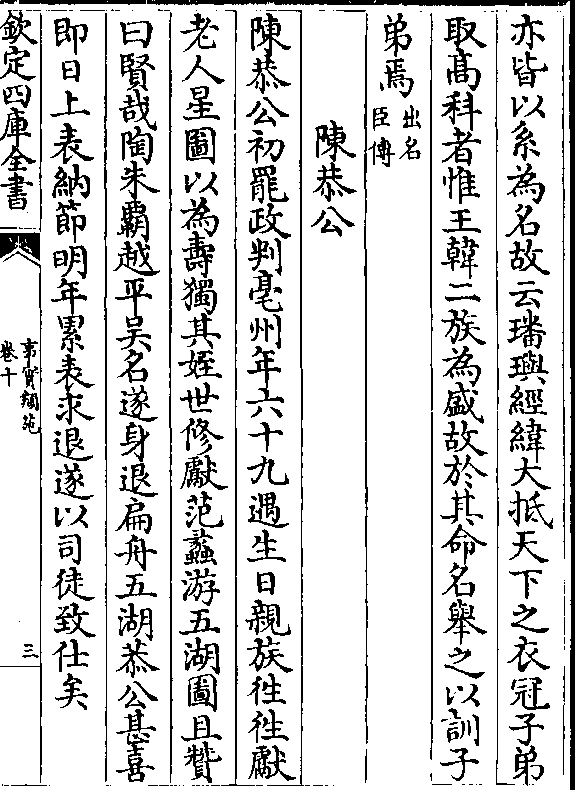 亦皆以系為名故云璠璵經緯大抵天下之衣冠子弟
取髙科者惟王韓二族為盛故於其命名舉之以訓子
弟焉出名臣傳
陳恭公
陳恭公初罷政判亳州年六十九遇生日親族徃徃獻
老人星圖以為壽獨其姪世修獻范蠡游五湖圖且贊
曰賢哉陶朱霸越平吳名遂身退扁舟五湖恭公甚喜
即日上表納節明年累表求退遂以司徒致仕矣
欽定四庫全書
事實類苑
卷十
三